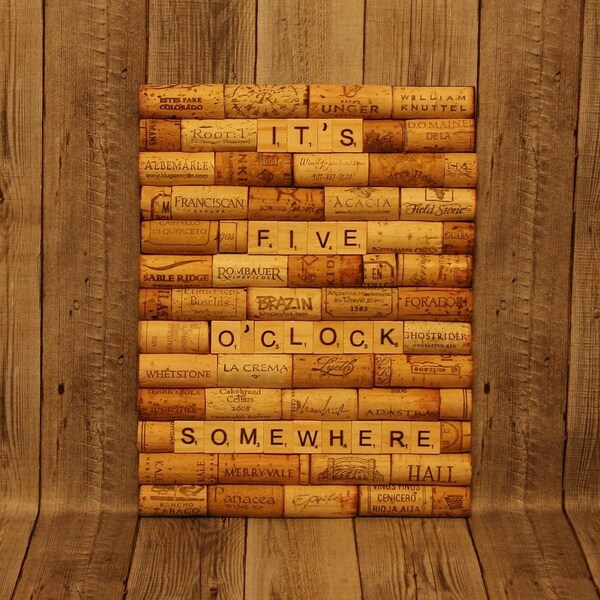 ESTES PARK COLORADO UNGER WILLIAM KNUTTEL
Root:1 IT'S DOMAINE DE LA
ALBEMARLE
FRANCISCAN ACACIA Field Stone
CASTELLO DI QUERCETO FIVE
SABLE RIDGE ROMBAUER
BRAZIN 1583 FORADORI
O'CLOCK GHOSTRIDER
WHETSTONE LA CREMA Lyeth
Cakebread Cellars 2008 ADASTRA
SOMEWHERE
MERRYVALE HALL
RANCHO ZABACO Panacea VINOS FINOS CENICERO RIOJA ALTA